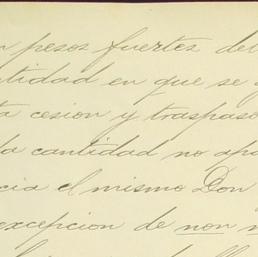 n pesos fuertes del
ntidad en que se
ta cesion y traspaso
la cantidad no apa
cia el mismo Don
excepcion de non n